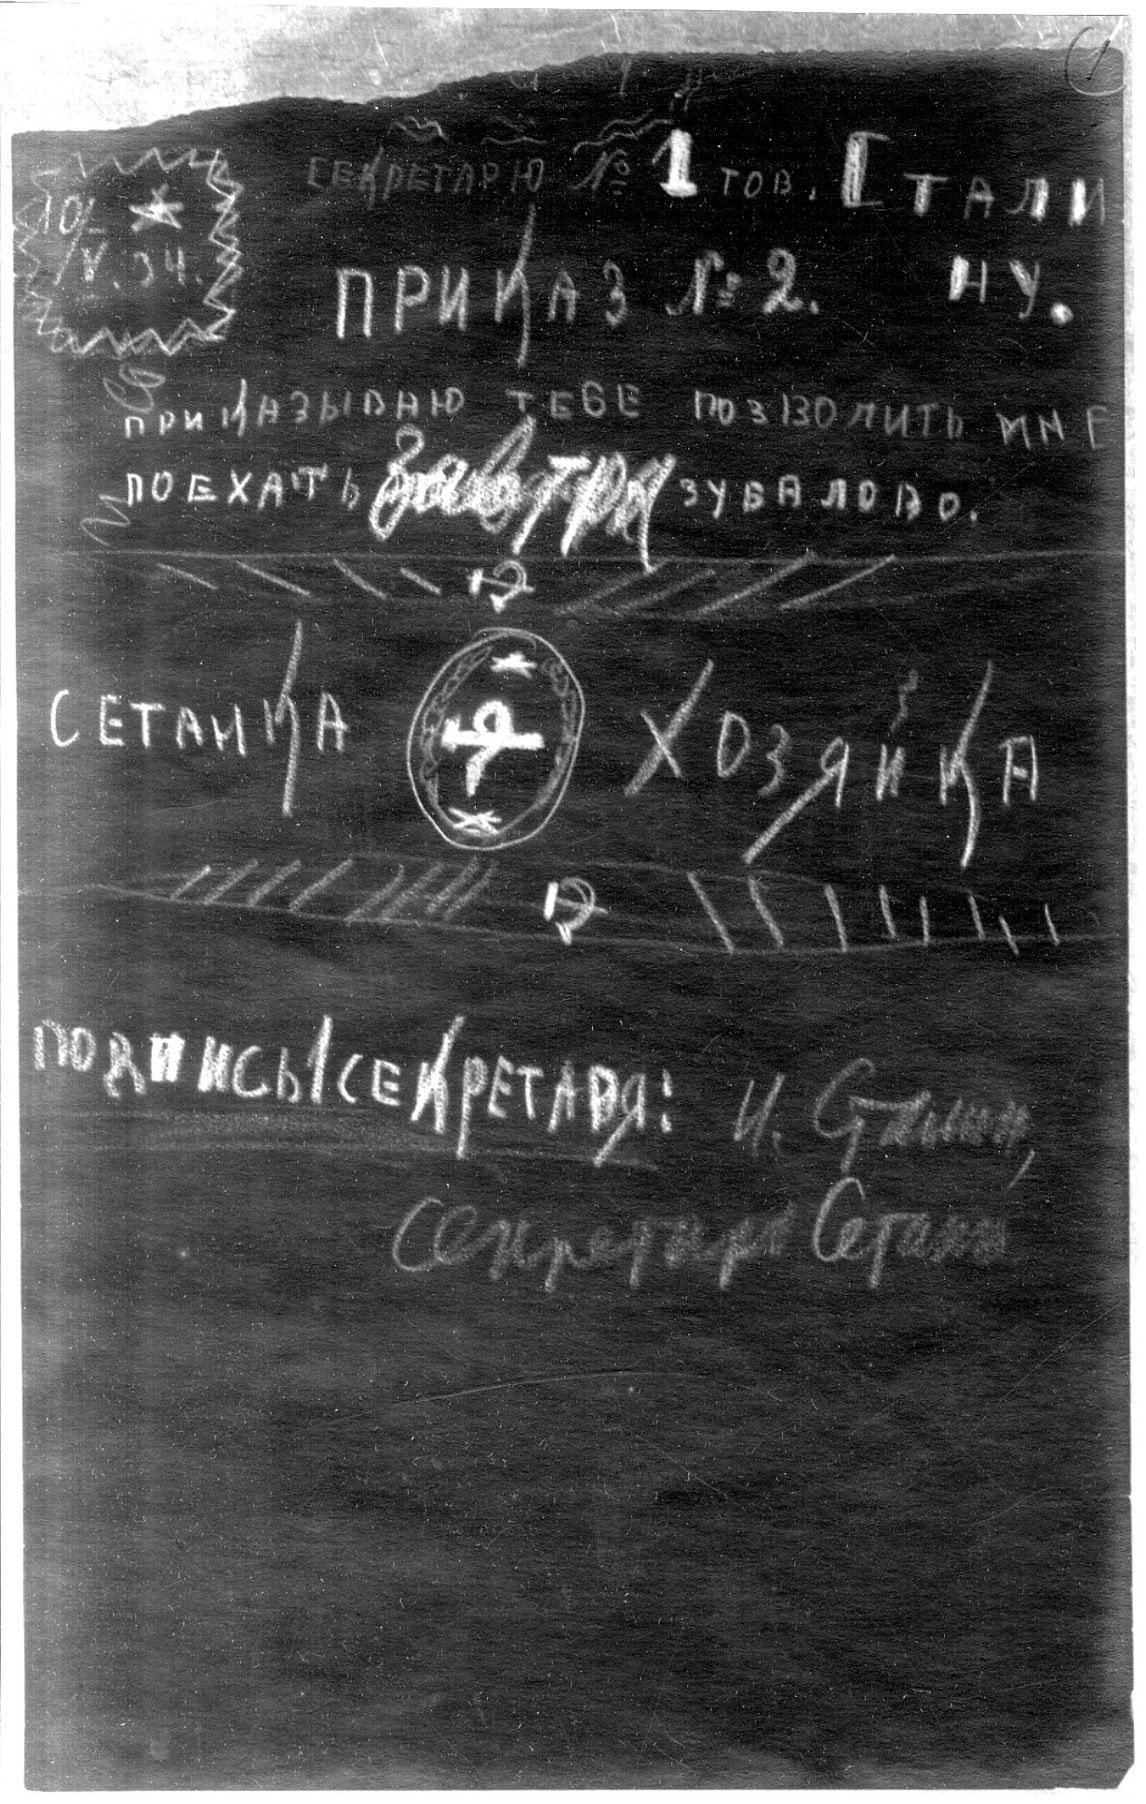 СЕКРЕТАРЮ № 1 ТОВ. СТАЛИ
НУ.
10/
V. 34.
ПРИКАЗ № 2.
ПРИКАЗЫВАЮ ТЕБЕ ПОЗВОЛИТЬ МНЕ
ПОЕХАТЬ завтра ЗУБАЛОВО.
СЕТАНКА ХОЗЯЙКА
ПОДПИСЫ СЕКРЕТАРЯ: И. Сталин,
Секретарь Сетанки